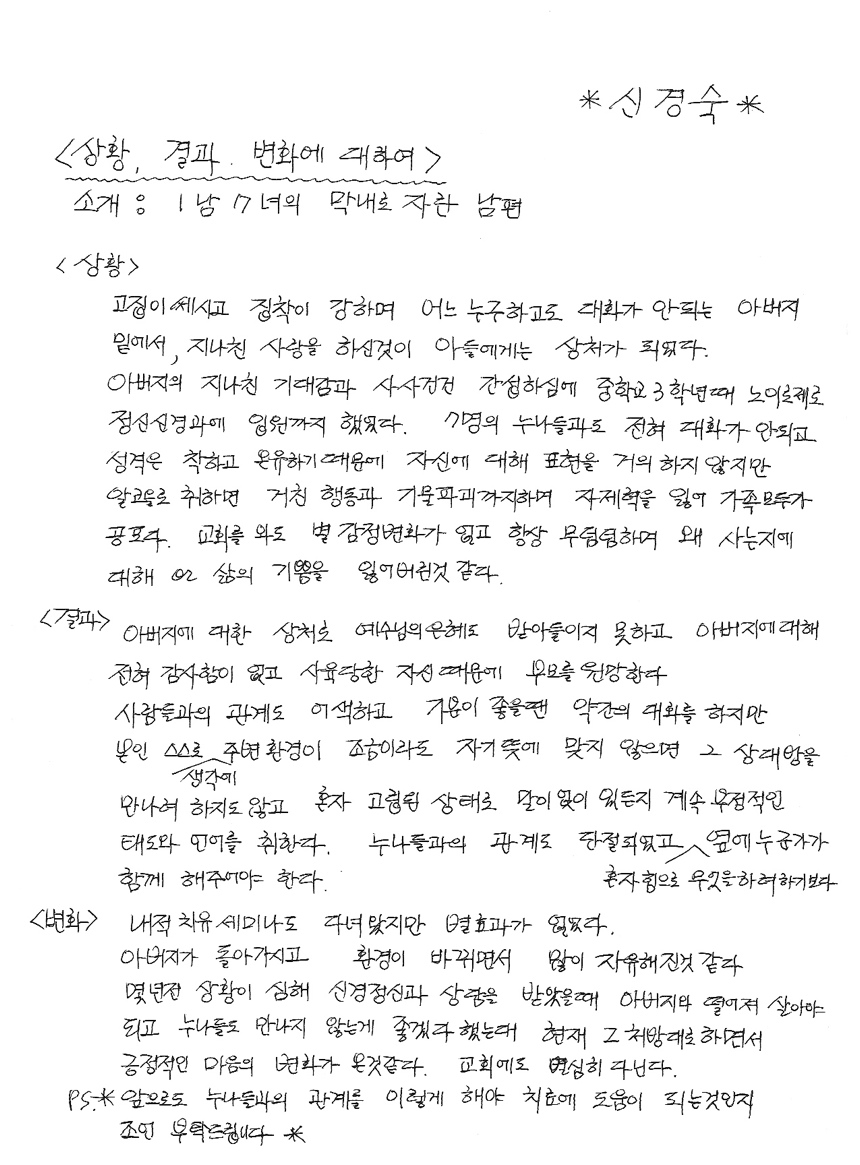 *신경숙*
<상황, 결과. 변화에 대하여>
소개 : 1남 7녀의 막내로 자란 남편
<상황>
고집이 세시고 집착이 강하며 어느 누구하고도 대화가 안되는 아버지
밑에서, 지나친 사랑을 하신것이 아들에게는 상처가 되었다.
아버지의 지나친 기대감과 사사건건 간섭하심에 중학교 3학년때 노이로제로
정신신경과에 입원까지 했었다. 7명의 누나들과도 전혀 대화가 안되고
성격은 착하고 온유하기 때문에 자신에 대해 표현을 거의 하지 않지만
알코올로 취하면 거친 행동과 기물파괴까지하며 자제력을 잃어 가족모두가
공포다. 교회를 와도 별 감정변화가 없고 항상 무덤덤하며 왜 사는지에
대해 삶의 기쁨을 잃어버린것 같다.
<결과> 아버지에 대한 상처로 예수님의 은혜도 받아들이지 못하고 아버지에 대해
전혀 감사함이 없고 사육당한 자신 때문에 부모를 원망한다
사람들과의 관계도 어색하고 기분이 좋을땐 약간의 대화를 하지만
본인 스스로 생각에 주변 환경이 조금이라도 자기 뜻에 맞지 않으면 그 상대방을
만나려 하지도 않고 혼자 고립된 상태로 말이 없이 있든지 계속 부정적인
태도와 언어를 취한다. 누나들과의 관계도 단절되었고 혼자 힘으로 무엇을 하려하기보다 옆에 누군가가
함께 해주어야 한다.
<변화> 내적 치유 세미나도 다녀 왔지만 별효과가 없었다.
아버지가 돌아가시고 환경이 바뀌면서 많이 자유해진것 같다
몇년전 상황이 심해 신경정신과 상담을 받았을때 아버지와 떨어져 살아야
되고 누나들도 만나지 않는게 좋겠다 했는데 현재 그 처방대로 하면서
긍정적인 마음의 변화가 온것같다. 교회에도 열심히 다닌다.
PS.* 앞으로도 누나들과의 관계를 이렇게 해야 치료에 도움이 되는것인지
조언 부탁드립니다 *